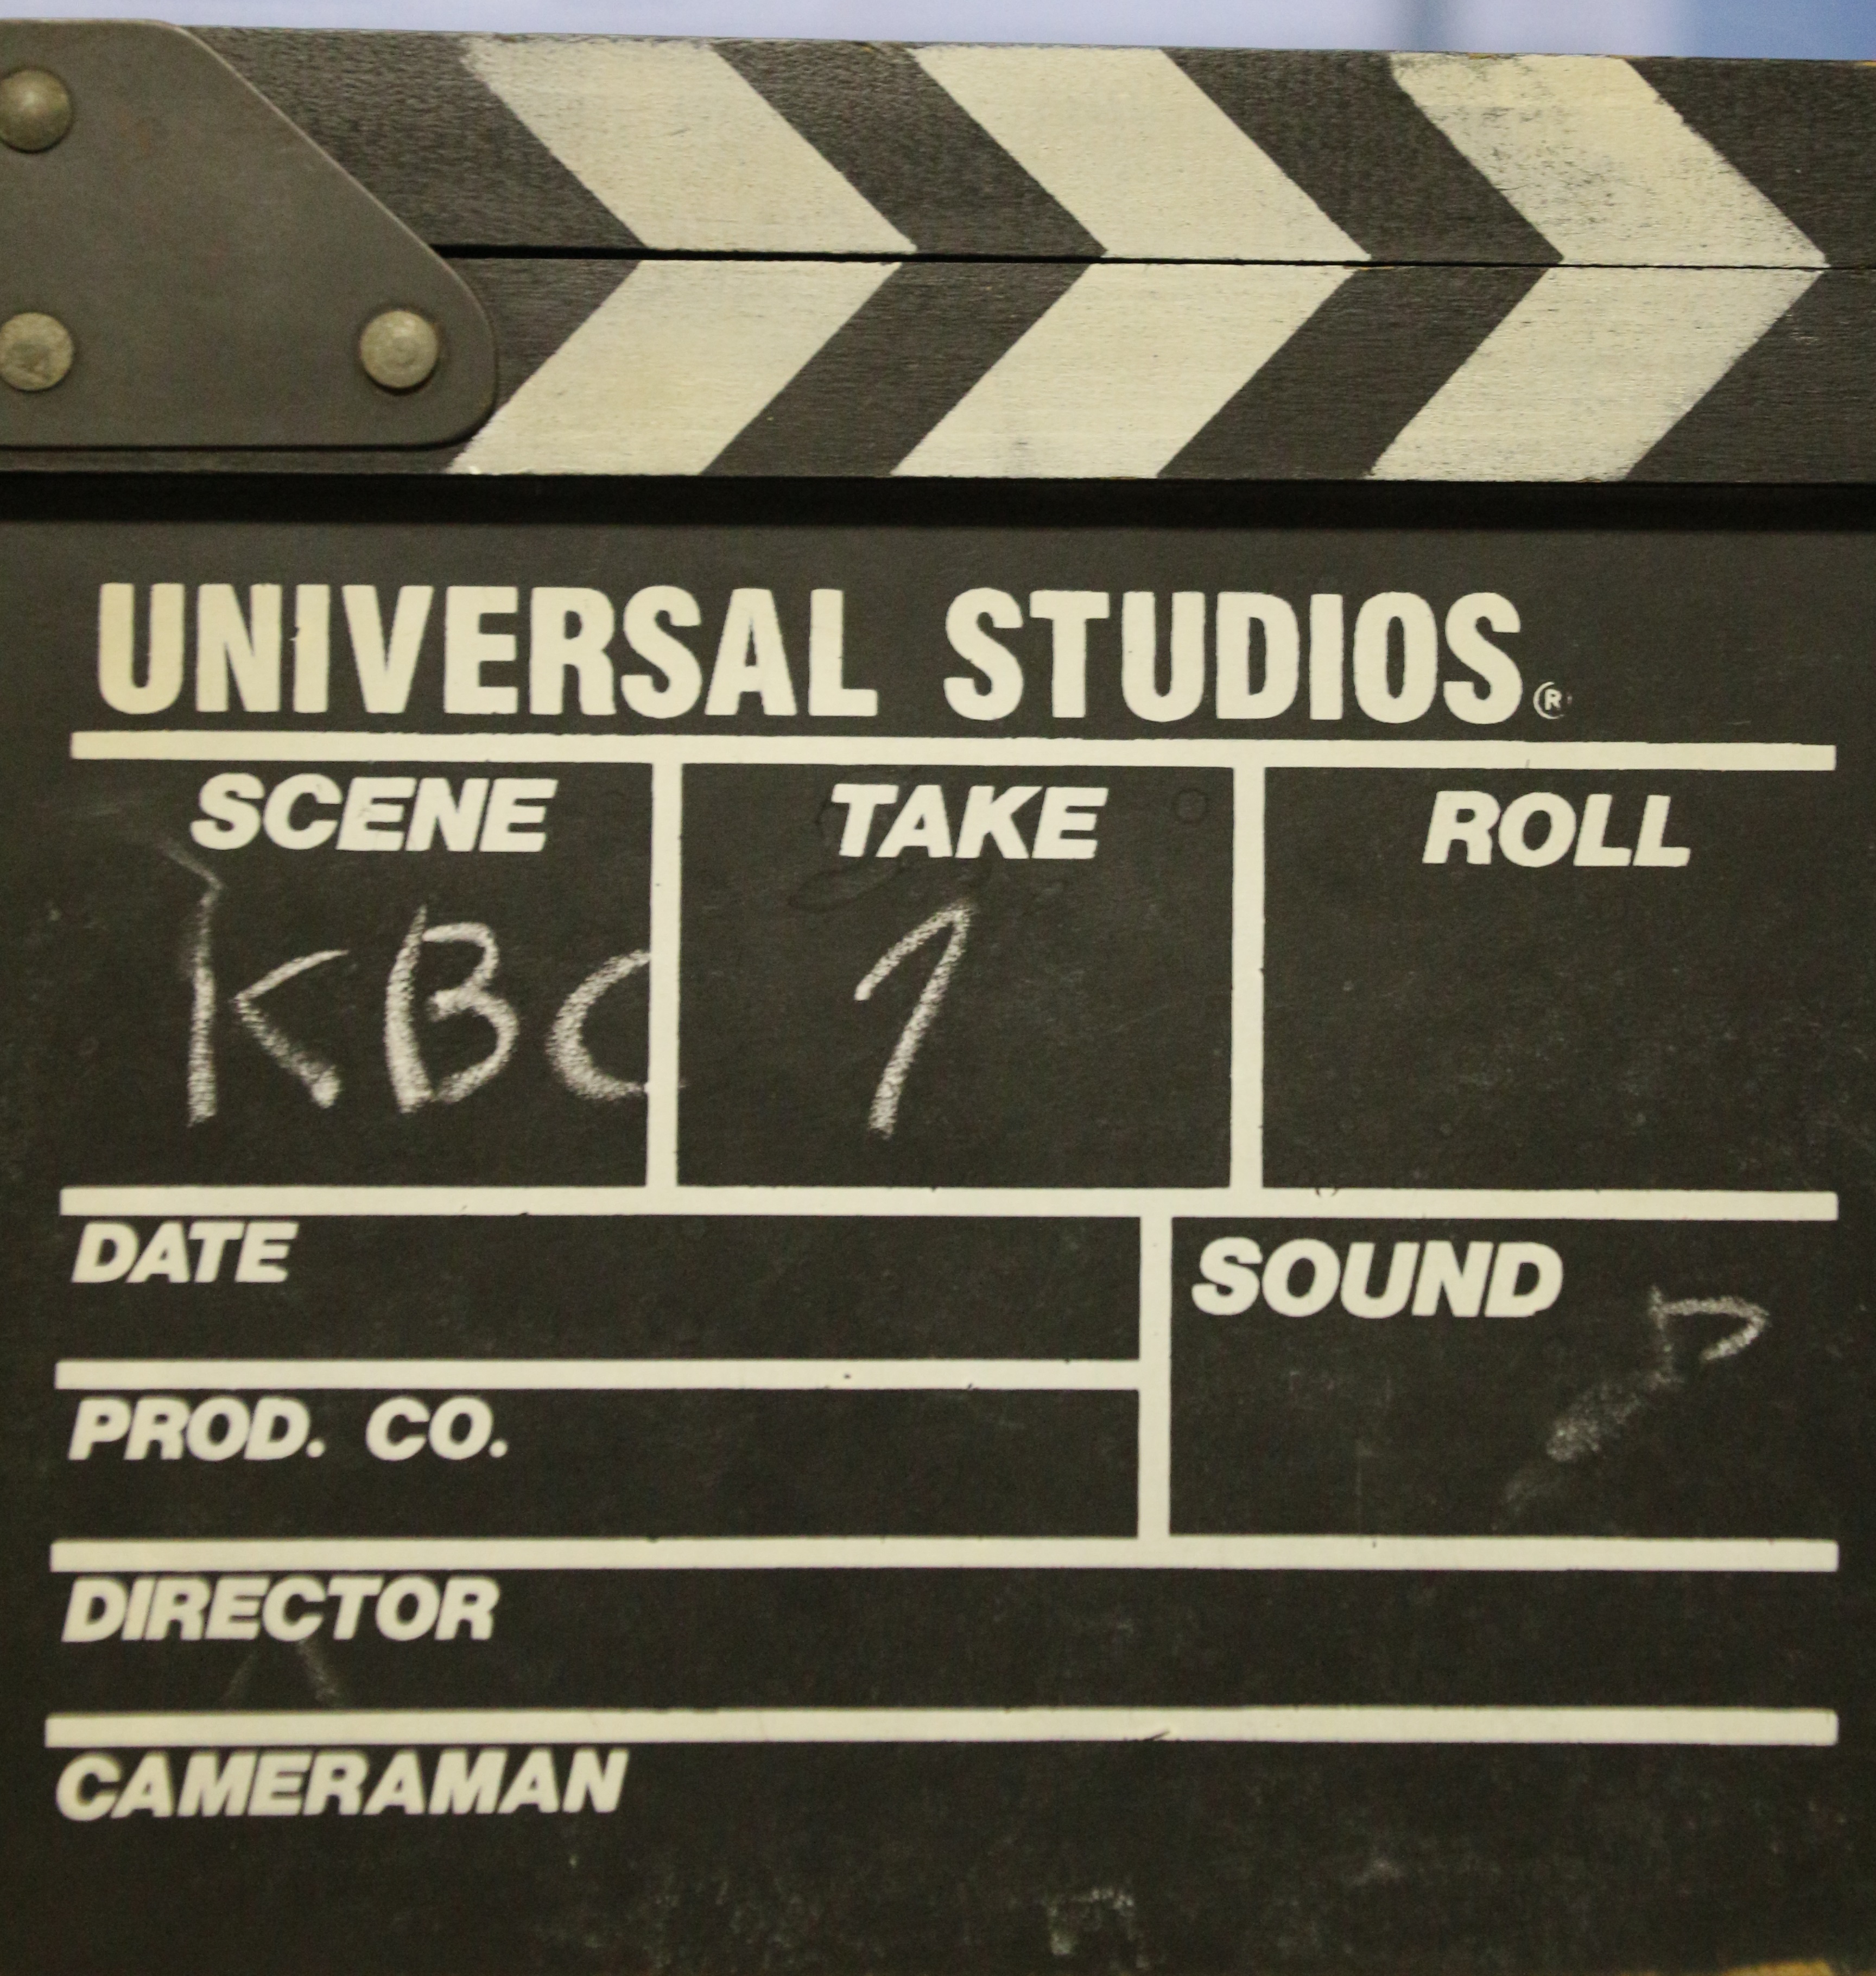 UNIVERSAL STUDIOS®
SCENE TAKE ROLL
KBC 1
DATE
SOUND
PROD. CO.
DIRECTOR
CAMERAMAN